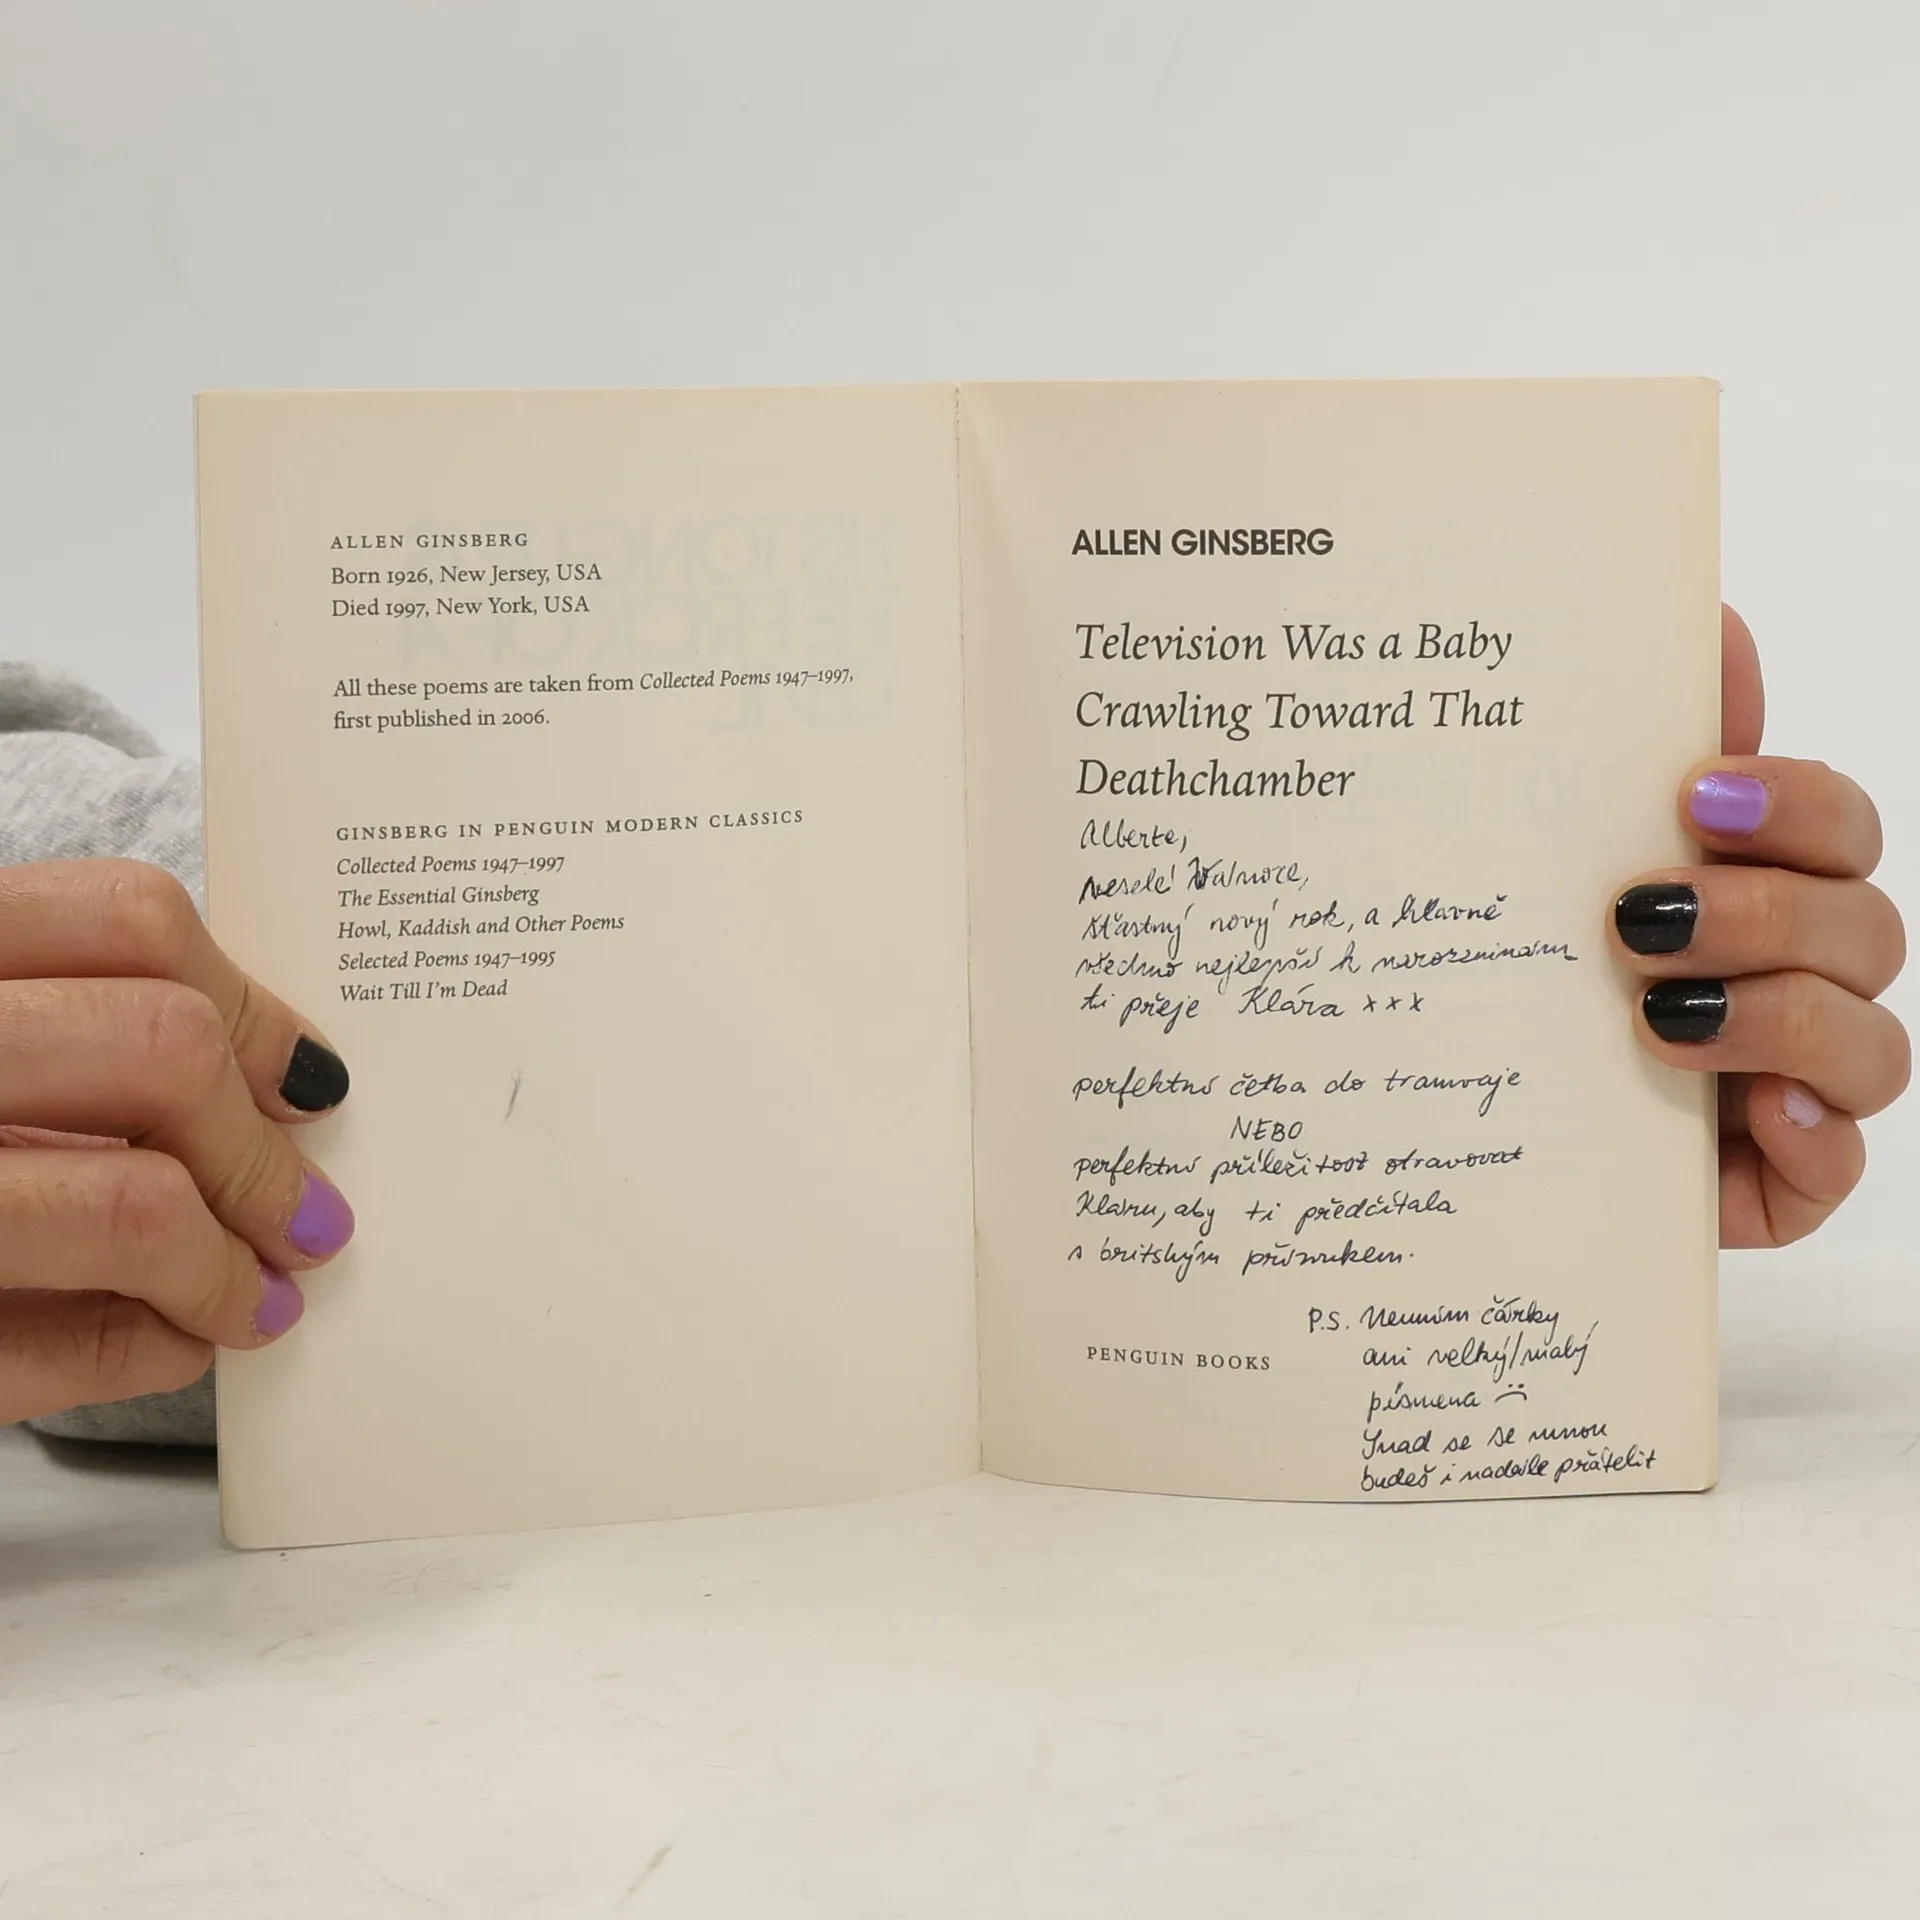 ALLEN GINSBERG
Born 1926, New Jersey, USA
Died 1997, New York, USA
All these poems are taken from Collected Poems 1947–1997,
first published in 2006.
GINSBERG IN PENGUIN MODERN CLASSICS
Collected Poems 1947–1997
The Essential Ginsberg
Howl, Kaddish and Other Poems
Selected Poems 1947–1995
Wait Till I'm Dead
ALLEN GINSBERG
Television Was a Baby
Crawling Toward That
Deathchamber
Alberte,
veselé Vánoce,
šťastný nový rok, a hlavně
všechno nejlepší k narozeninám
ti přeje Klára xxx
perfektní četba do tramvaje
NEBO
perfektní příležitost otravovat
Kláru, aby ti předčítala
s britským přízvukem.
P.S. Neumím čárky
ani velký/malý
písmena
Snad se se mnou
budeš i nadále přátelit
PENGUIN BOOKS